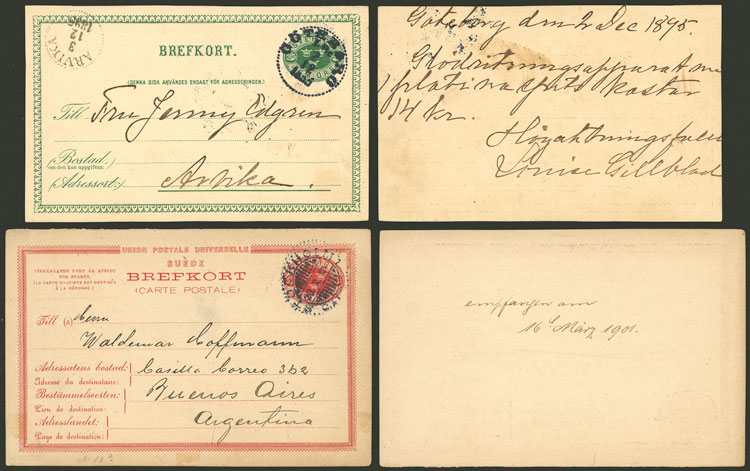 ARVIKA
3
12
1895
BREFKORT.
(DENNA SIDA ANVÄNDES ENDAST FÖR ADRESSERINGEN.)
Till Fru Jenny Edgren
(Bostad:
om den kan uppgifvas:)
(Adressort:) Arvika.
Göteborg den 2 Dec 1895.
Glödritningsapparat me
platinastift kostar
14 kr.
Högaktningsfull
Louise Lillblad
UNION POSTALE UNIVERSELLE
SUÈDE
BREFKORT
(CARTE POSTALE)
(VIDHÄNGANDE KORT ÄR AFSEDT
FÖR SVARET.
(LA CARTE CI-JOINTE EST DESTINÉE
À LA RÉPONSE.)
Till (à) Herrn
Waldemar Hoffmann
Adressatens bostad: Casilla Correo 362
Adresse du destinataire:
Bestämmelseorten: Buenos Aires
Lieu de destination:
Adresslandet: Argentina
Pays de destination:
empfangen am
16t März 1901.